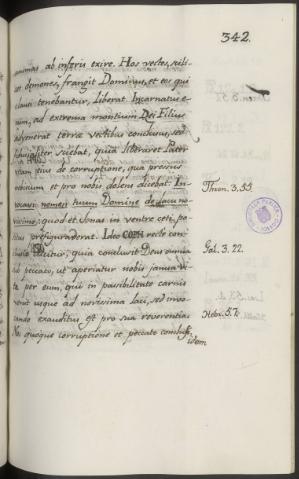 342.
animas ab inferis exire. Hos vectes, scili-
cet demones, frangit Dominus, et eos qui
clausi tenebantur, liberat. Incarnatus e-
nim, ad extrema montium Dei Filius
advenerat terræ vectibus conclusus, sed
ibi
quia liberaret Pater
vitam ejus de corruptione, qua pressus
et pro nobis dolens dicebat: In-
vocavi nomen tuum Domine de lacu no-
vissimo; quod et Jonas in ventre ceti, po-
tius præfiguraderat. Ideo recte con-
dicitur; quia conclusit Deus omnia
sub peccato, ut aperiatur nobis janua vi-
tæ per eum, qui in passibilitate carnis
venit usque ad novissima laci, sed invo-
cando exauditus est pro sua reverentia.
Nos quoque corruptione et peccato
idem
Thren. 3. 55.
Gal. 3. 22.
Hebr. 5. 7.